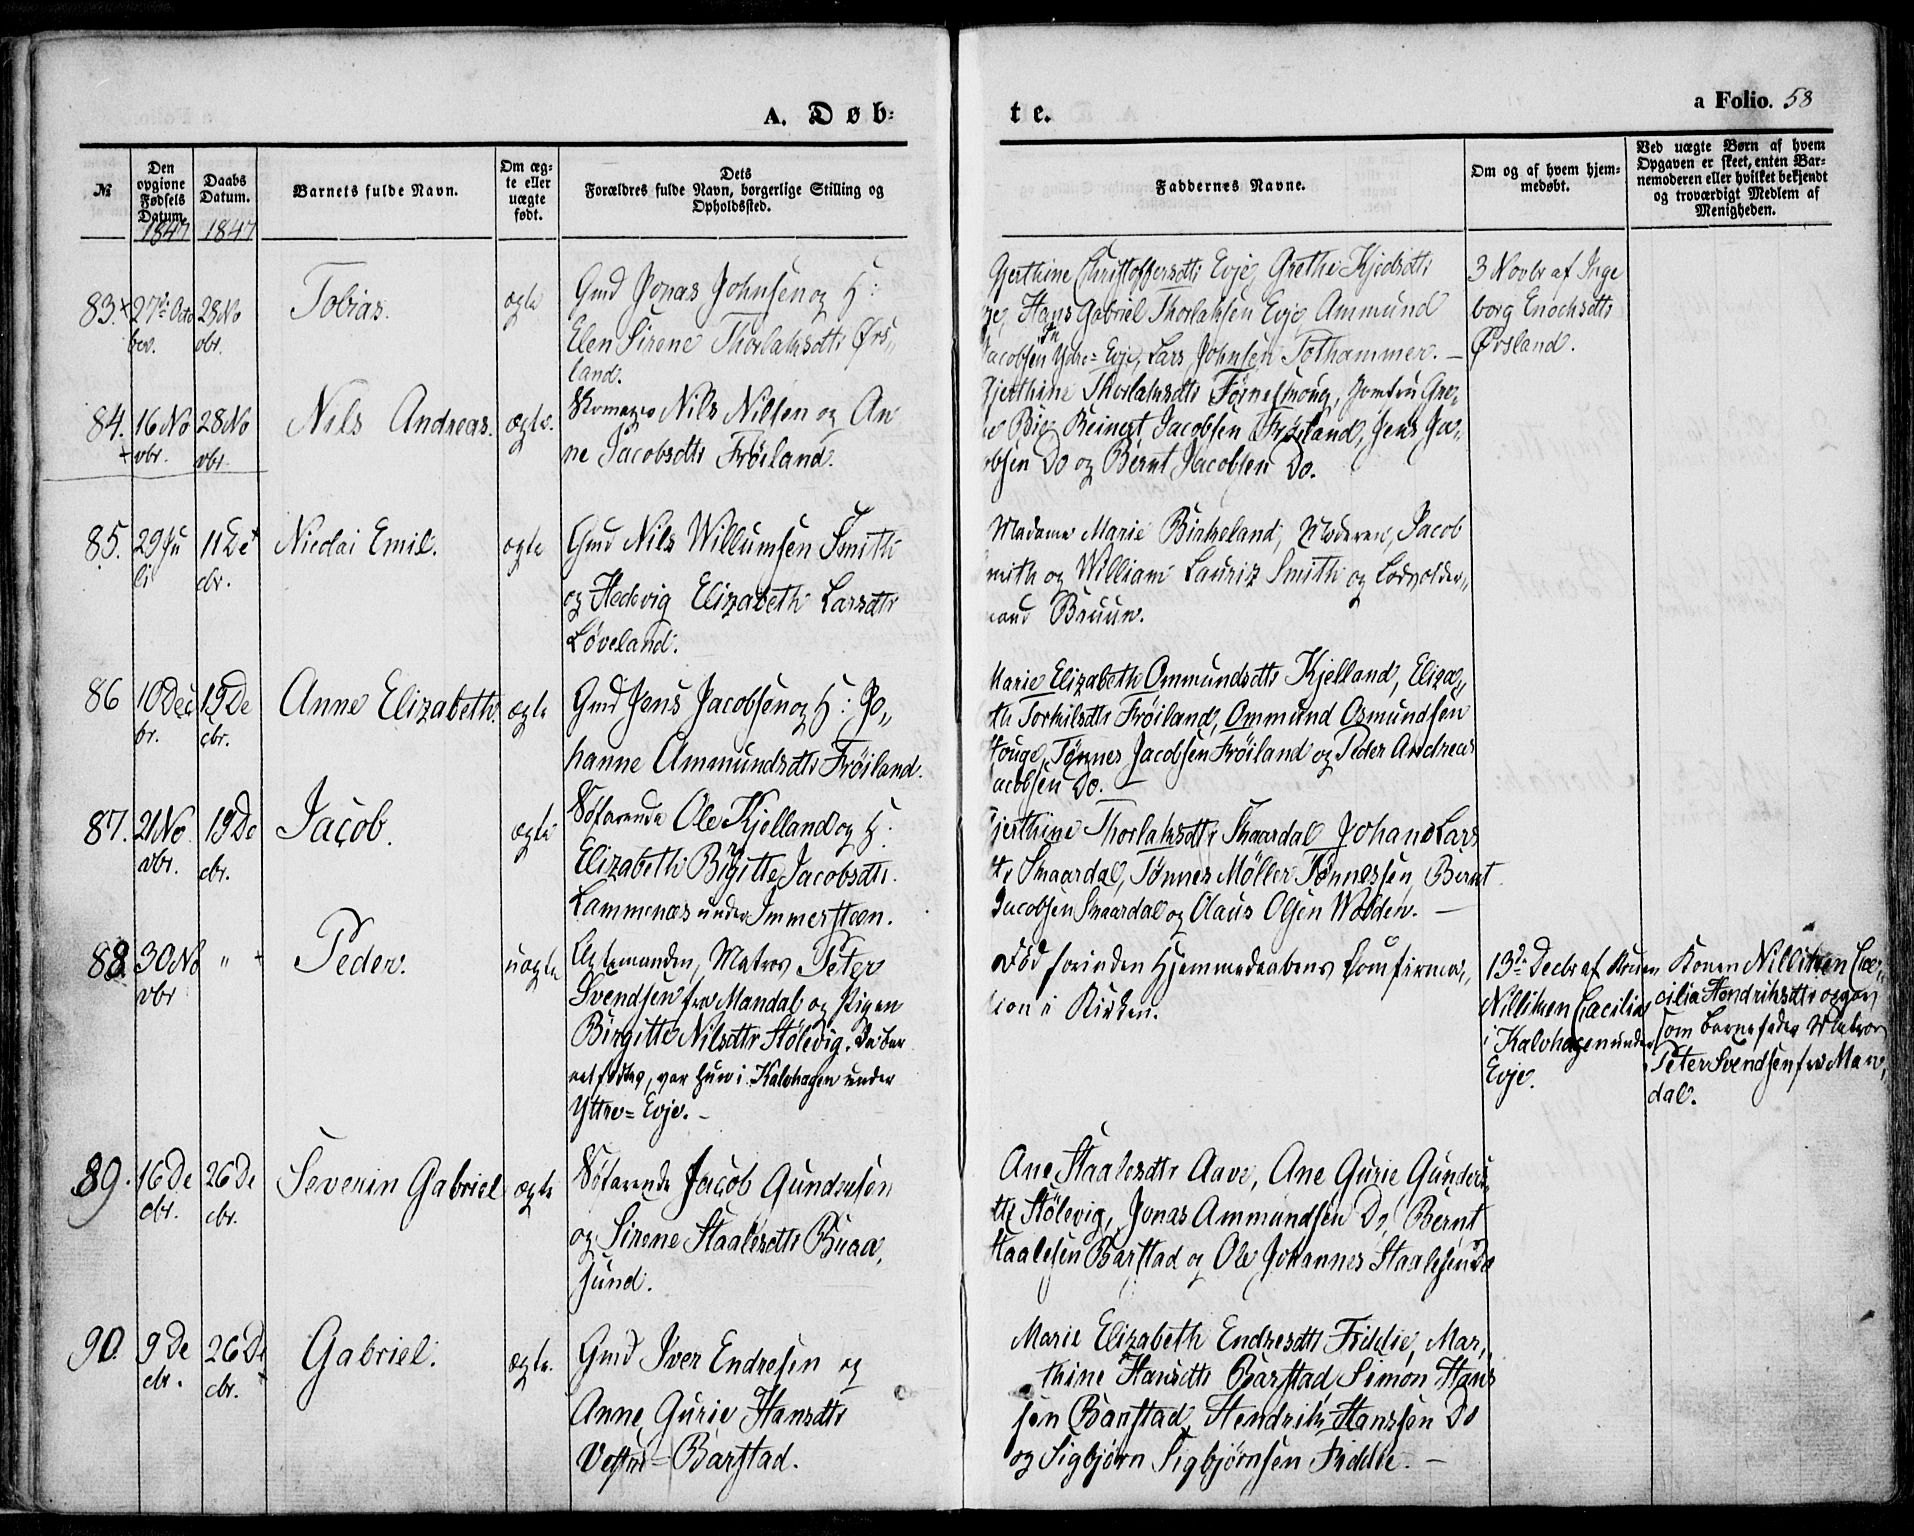 A. Døb-
te.
a Folio. 58
№
Den opgivne Fødsels Datum. 1847
Daabs Datum. 1847
Barnets fulde Navn.
Om ægte eller uægte født.
Dets Forældres fulde Navn, borgerlige Stilling og Opholdssted.
Faddernes Navne.
Om og af hvem hjemmedøbt.
Ved uægte Børn af hvem Opgaven er skeet, enten Barnemoderen eller hvilket bekjendt og troværdigt Medlem af Menigheden.
83. 27de Octo
ber.
28 No
vbr.
Tobias.
ægte
Gmd Jonas Johnsen og H:
Elen Sirene Thorlaksdtr Ørs„
land.
Gjerthine Christoffersdtr Evje, Grethe Kjedsdtr
Hans Gabriel Thorlaksen Evje Ammund
Jacobsen Ydre= Evje, Lars Johnsen Tothammer. —
3 Novbr af Inge
borg Enochsdtr
Ørsland.
84. 16 No
vbr.
28 No
vbr.
Nils Andreas.
ægte.
Skomager Nils Nilsen og An
ne Jacobsdtr Frøiland.
Gjerthine Thorlaksdtr Jomfru Gre„
Bie Reinert Jacobsen Frøiland, Jens Ja„
obsen Do og Bernt Jacobsen Do.
85. 29 Ju
li
11 De
cbr.
Nicolai Emil.
ægte
Gmd Nils Willumsen Smith
og Hedevig Elizabeth Larsdtr
Løveland.
Madame Marie Birkeland, Moderen, Jacob
mith og William Lauriz Smith og Lodsolder„
mand Bruun.
86 10 Dec
br.
19 De
cbr.
Anne Elizabeth.
ægte
Gmd Jens Jacobsen og H: Jo„
hanne Ammundsdtr Frøiland.
Marie Elizabeth Ommundsdtr Kjelland, Eliza„
th Torkilsdtr Frøiland, Ommund Osmundsen
Houge, Tønnes Jacobsen Frøiland og Peder Andreas
acobsen Do. —
87. 21 No
vbr.
19 De
cbr.
Jacob.
ægte
Søfarende Ole Kjelland og H:
Elizabeth Birgitte Jacobsdtr
Lammenæs under Immersteen.
Gjerthine Thorlaksdtr Skaardal Johane Lars
dtr Skaardal, Tønnes Møller Tønnessen, Bernt
Jacobsen Skaardal og Olaus Olsen Wolden. —
88. 30 No
vbr
„
Peder.
uægte
Ægtemanden, Matros Peter
Svendsen fra Mandal og Pigen
Birgitte Nilsdtr Stølevig. Da bar
net fødtes, var hun i Kalvhagen under
Yttre= Evje. —
Død forinden Hjemmedaabens Confirma„
tion i Kirken.
13de Decbr af Konen
Nillikken Cæcilia
i Kalvhagen under
Evje.
Konen Nillikken Cæ„
cilia Hendriksdtr opgav
som barnefader Matros
Peter Svendsen fra Man„
dal.
89. 16 De
cbr.
26 De
cbr.
Severin Gabriel
ægte
Søfarende Jacob Gundersen
og Sirene Staalesdtr Ruaa„
sund.
Ane Staalesdtr Aave, Ane Gurie Gunders„
dtr Stølevig, Jonas Ammundsen Do, Bernt
Staalesen Barstad og Ole Johannes Staalesen Do
90. 9 De
cbr.
26 De
cbr.
Gabriel.
ægte.
Gmd Iver Endresen og
Anne Gurie Hansdtr
Vestre= Barstad.
Marie Elizabeth Endresdtr Fidtie, Mar„
thine Hansdtr Barstad, Simon Hans
sen Barstad, Hendrik Hanssen Do
og Sigbjørn Sigbjørnsen Fidtie. —